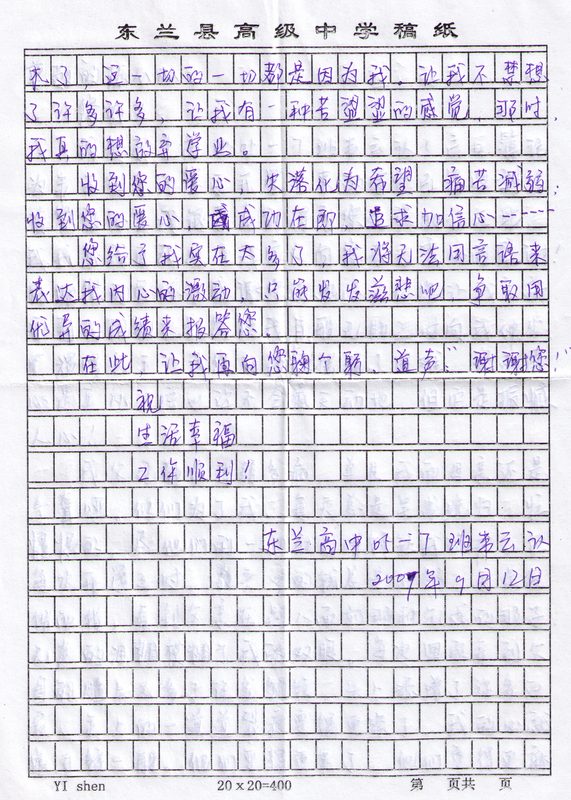 东兰县高级中学稿纸
来了，这一切的一切都是因为我，让我不禁想
了许多许多，让我有一种苦涩涩的感觉，那时，
我真的想放弃学业。
收到您的爱心，失落化为希望，痛苦减弱；
收到您的爱心，成功在即，追求加信心……
您给了我实在太多了，我将无法用言语来
表达我内心的激动，只能发发慈悲吧，争取用
优异的成绩来报答您。
在此，让我再向您鞠个躬，道声"谢谢您！"
祝
生活幸福
工作顺利！
东兰高中05-7班
2007年9月12日
YI shen 20×20=400 第 页共 页